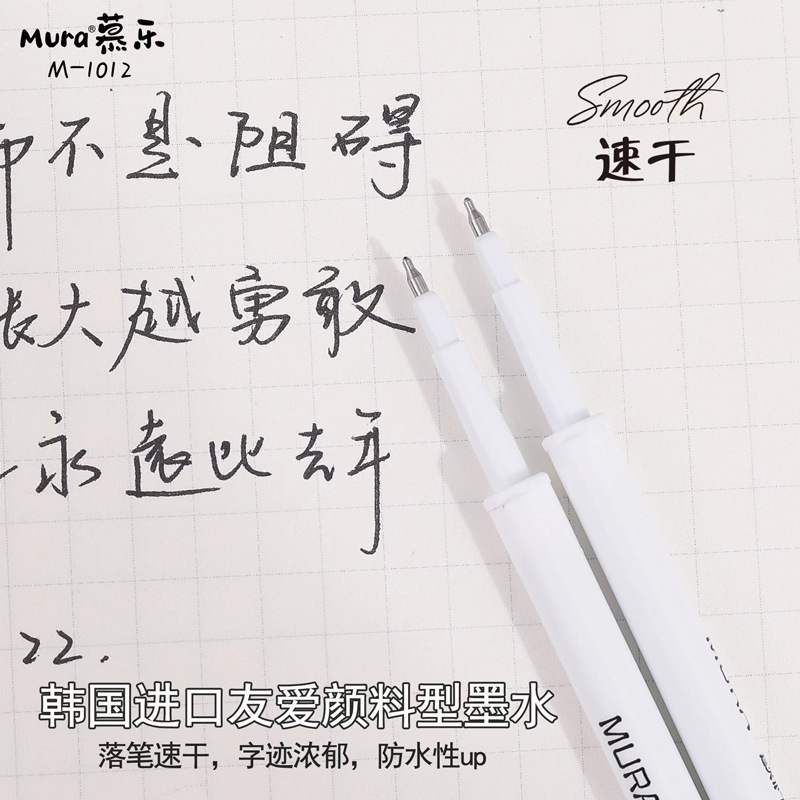 Mura®慕乐
M-1012
Smooth
速干
不是阻碍
长大越勇敢
永远比去年
22.
韩国进口友爱颜料型墨水
落笔速干，字迹浓郁，防水性up
MURA